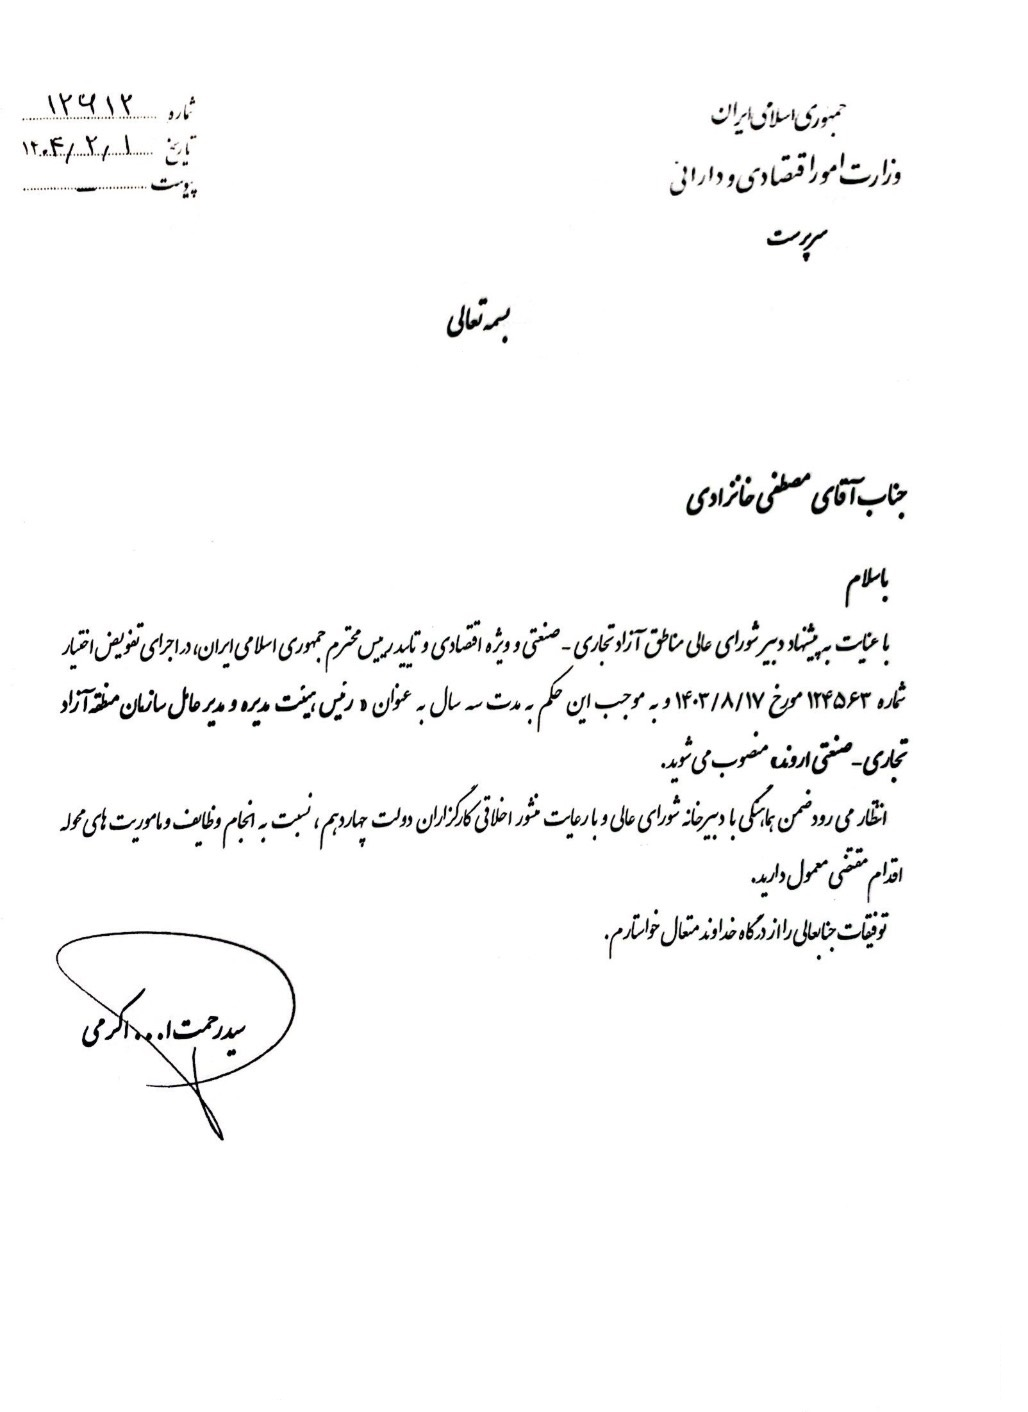 جمهوری اسلامی ایران
وزارت امور اقتصادی و دارائی
سرپرست
شماره ۱۲۶۱۲
تاریخ ۱۴۰۴/۲/۱
پیوست ــ
بسمه تعالی
جناب آقای مصطفی خانزادی
باسلام
با عنایت به پیشنهاد دبیر شورای عالی مناطق آزاد تجاری - صنعتی و ویژه اقتصادی و تایید رییس محترم جمهوری اسلامی ایران، در اجرای تفویض اختیار
شماره ۱۲۴۵۶۳ مورخ ۱۴۰۳/۸/۱۷ و به موجب این حکم به مدت سه سال به عنوان « رئیس هیئت مدیره و مدیر عامل سازمان منطقه آزاد
تجاری - صنعتی اروند» منصوب می شوید.
انتظار می رود ضمن هماهنگی با دبیرخانه شورای عالی و با رعایت منشور اخلاقی کارگزاران دولت چهاردهم ، نسبت به انجام وظایف و ماموریت های محوله
اقدام مقتضی معمول دارید.
توفیقات جنابعالی را از درگاه خداوند متعال خواستارم.
سید رحمت ا... اکرمی